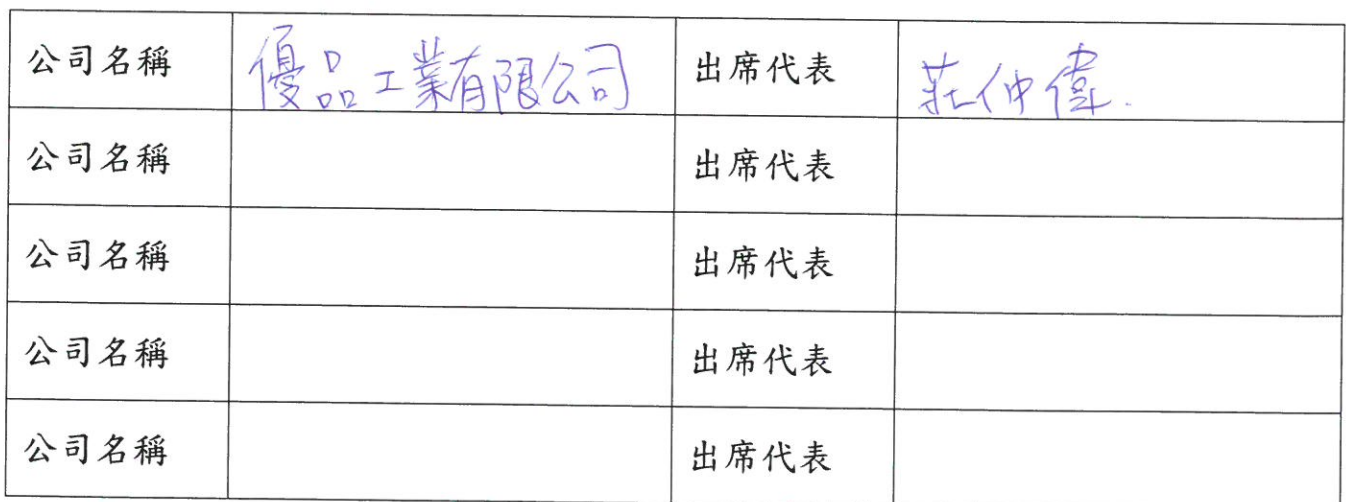 公司名稱 優品工業有限公司 出席代表 莊仲偉.
公司名稱 出席代表
公司名稱 出席代表
公司名稱 出席代表
公司名稱 出席代表